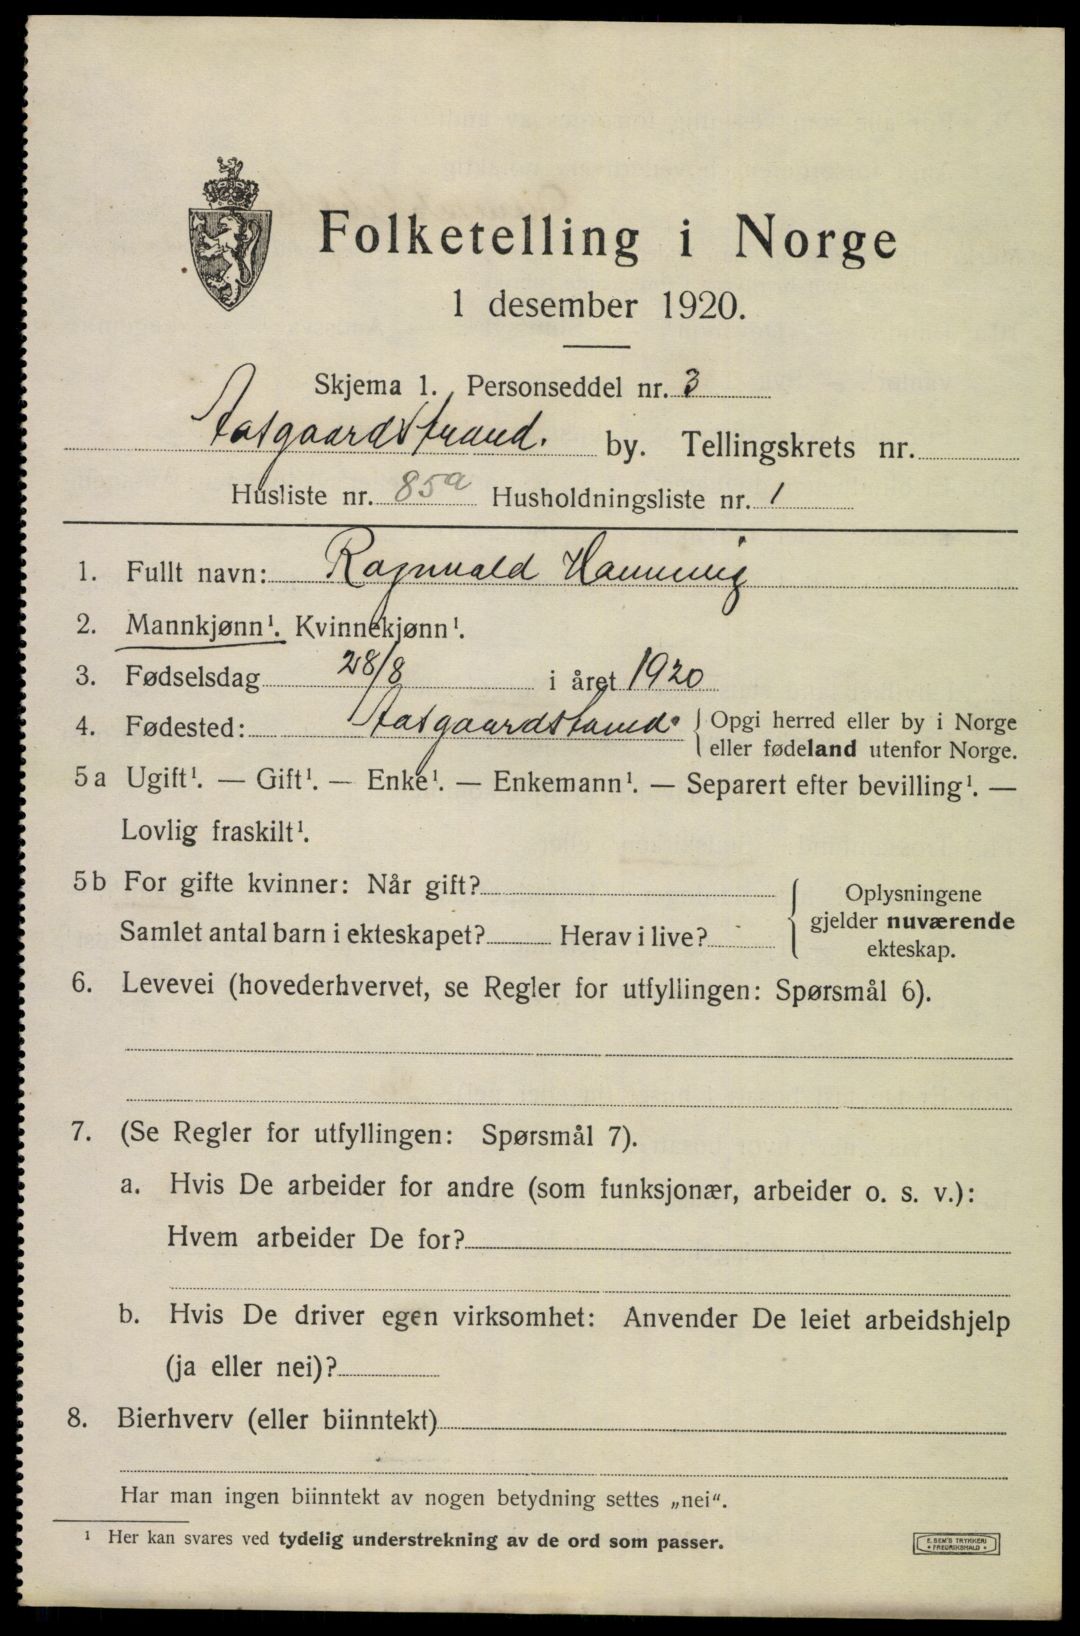 Folketelling i Norge
1 desember 1920.
Skjema 1. Personseddel nr. 3
Aasgaardstrand. by. Tellingskrets nr.
Husliste nr. 85a Husholdningsliste nr. 1
1. Fullt navn: Ragnvald Hanning
2. Mannkjønn¹. Kvinnekjønn¹.
3. Fødselsdag 28/8 i året 1920
4. Fødested: Aasgaardstrand. { Opgi herred eller by i Norge
eller fødeland utenfor Norge.
5 a Ugift¹. — Gift¹. — Enke¹. — Enkemann¹. — Separert efter bevilling¹. —
Lovlig fraskilt¹.
5 b For gifte kvinner: Når gift?
Samlet antal barn i ekteskapet? Herav i live?
{ Oplysningene
gjelder nuværende
ekteskap.
6. Levevei (hovederhvervet, se Regler for utfyllingen: Spørsmål 6).
7. (Se Regler for utfyllingen: Spørsmål 7).
a. Hvis De arbeider for andre (som funksjonær, arbeider o. s. v.):
Hvem arbeider De for?
b. Hvis De driver egen virksomhet: Anvender De leiet arbeidshjelp
(ja eller nei)?
8. Bierhverv (eller biinntekt)
Har man ingen biinntekt av nogen betydning settes „nei“.
¹ Her kan svares ved tydelig understrekning av de ord som passer.
E. SEM'S TRYKKERI
• FREDRIKSHALD •